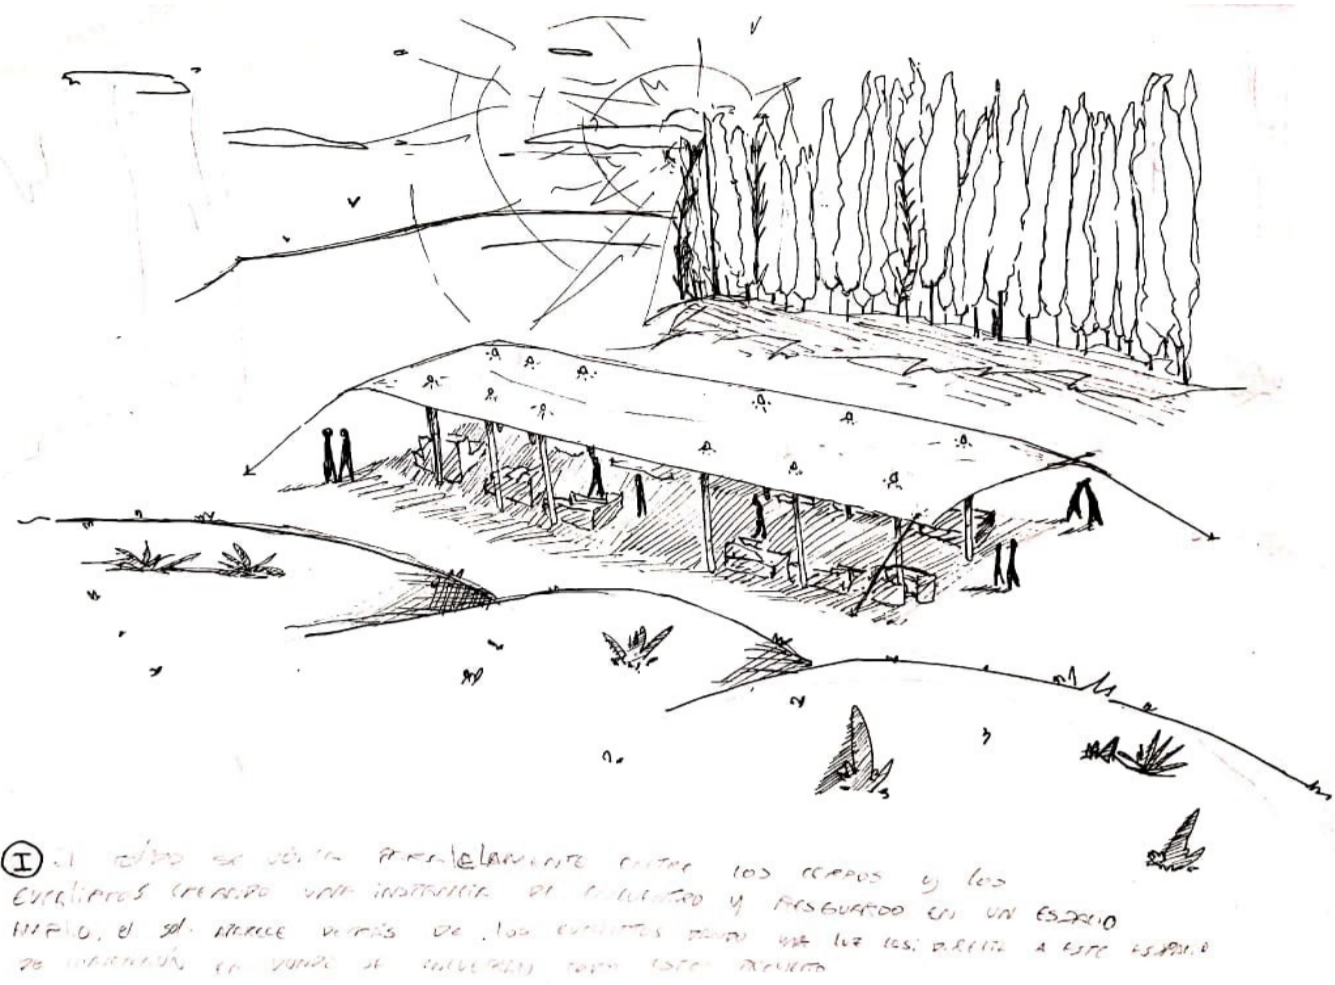 I El toldo se ubica paralelamente entre los cerros y los
eucaliptos creando una instancia de encuentro y resguardo en un espacio
amplio. El sol aparece detrás de los eucaliptos dando una luz casi directa a este espacio
de en donde se todo este proyecto